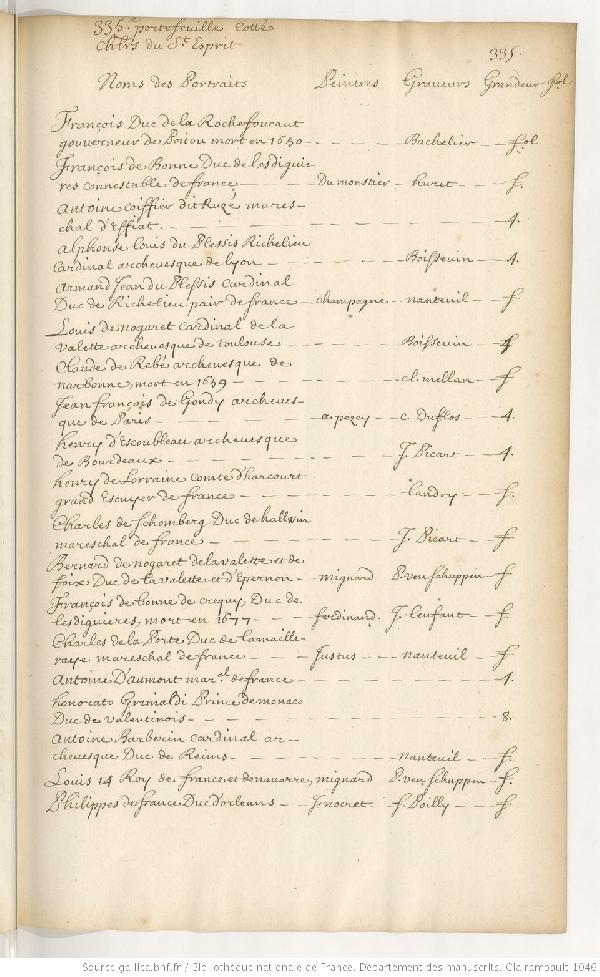 335.e portefeuille cotté
Chlrs du St. Esprit
335.
Noms des Portraits Peintres Graveurs Grandeur fol
François Duc de la Rochefoucaut
gouverneur de Poitou mort en 1650 - - - - Bachelier - fol
François de Bonne Duc de Lesdiguie
res connestable de france - - Du monstier - huret - f.
Antoine Coiffier dit Ruzé mares-
chal d'Effiat. - - - - - - 4.
Alphonse Louis du Plessis Richelieu
Cardinal archevesque de Lyon - - - - Boissevin - 4.
Armand Jean du Plessis Cardinal
Duc de Richelieu pair de france - champagne - nanteuil - f
Louis de nogaret Cardinal de la
valette archevesque de toulouse - - - Boissevin - f
Claude de Rebé archevesque de
narbonne, mort en 1659 - - - - - cl. mellan - f
Jean françois de Gondy archeves-
que de Paris - - - - - a. pezey - C. Duflos - 4.
henry d'Escoubleau archevesque
de Bourdeaux - - - - - J. Picart - 4.
henry de Lorraine comte d'harcourt
grand Escuyer de france - - - - Landry - f.
Charles de Schomberg Duc de halluin
mareschal de france - - - - - J. Picart - f
Bernard de nogaret de la valette et de
foix Duc de la valette et d'Epernon - mignard P. van Schuppen - f
François de bonne de crequy Duc de
lesdiguieres, mort en 1677 - - ferdinand. J. Lenfant - f.
Charles de la Porte Duc de la meille-
raye mareschal de france - - Justus - nanteuil - f
Antoine D'aumont mar.al de france - - - - 4.
honorato Grimaldi Prince de monaco
Duc de valentinois - - - - - - 8.
Antoine Barberin Cardinal ar-
chevesque Duc de Reims - - - - nanteuil - f.
Louis 14 Roy de france et de navarre, mignard P. van Schuppen - f.
Philippes de france Duc d'orleans - - J. nocret - f. Poilly - - f.
Source gallica.bnf.fr / Bibliothèque nationale de France. Département des manuscrits. Clairambault 1046